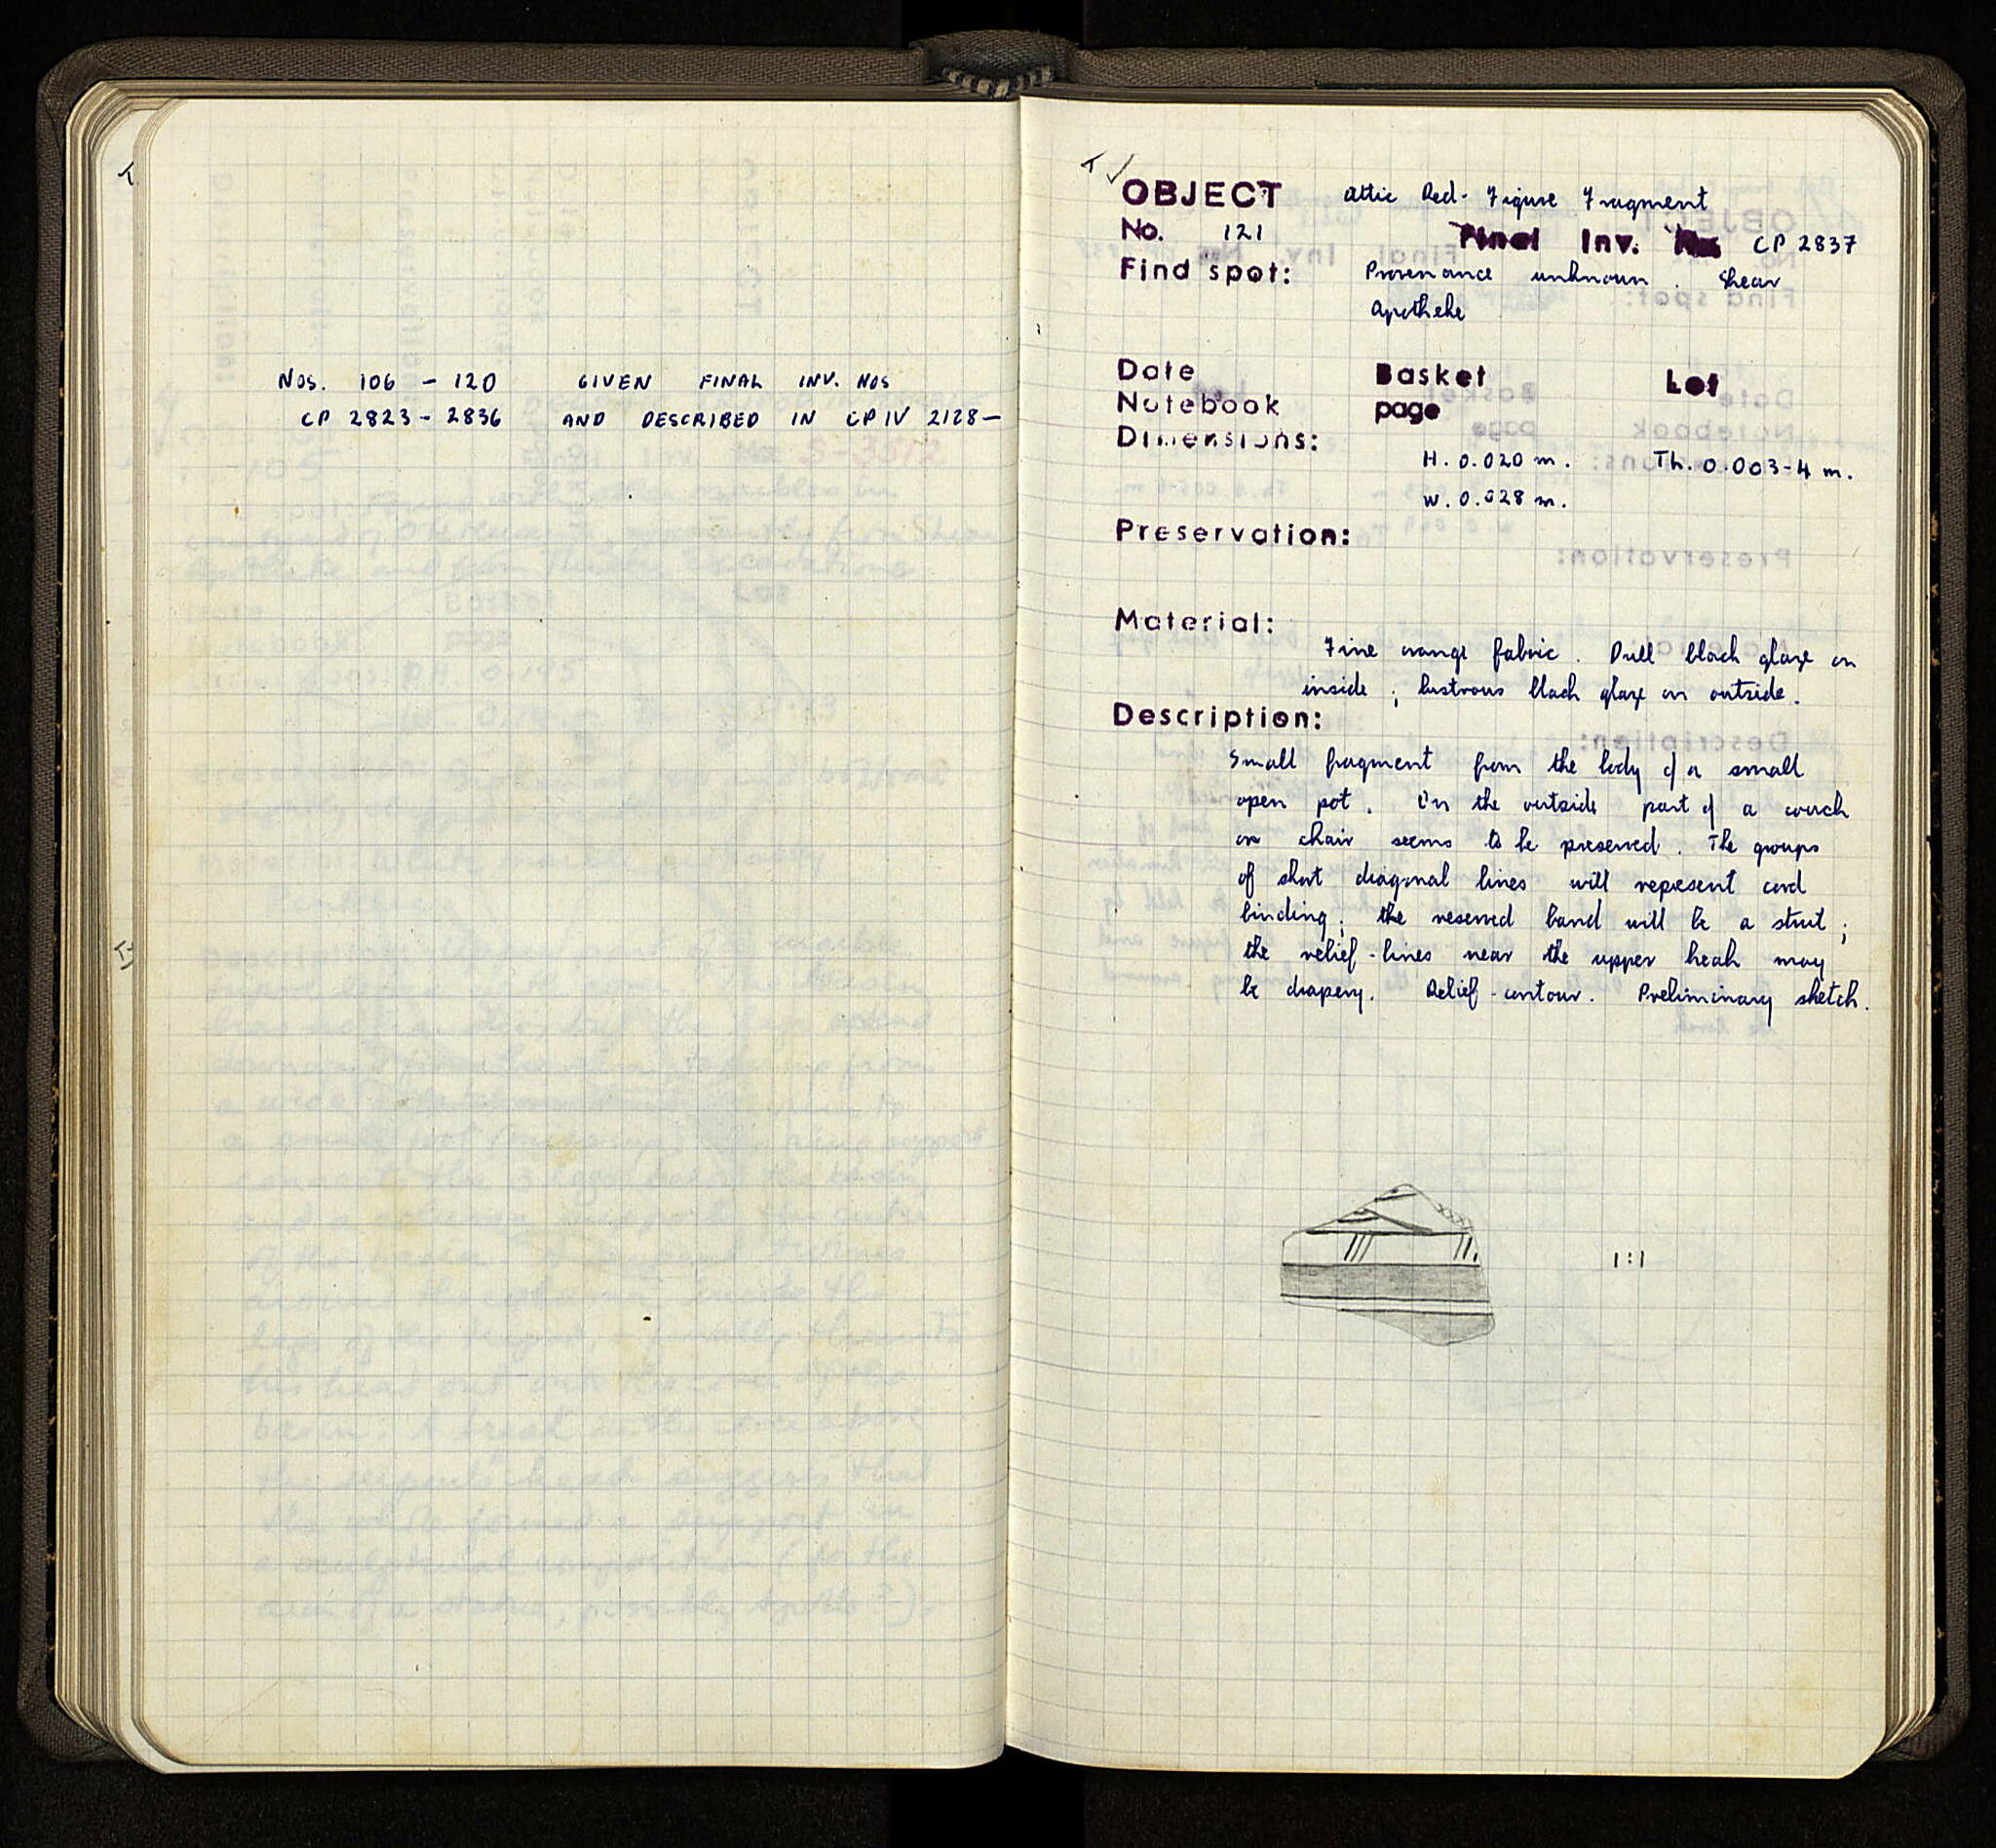 NOS. 106 - 120 GIVEN FINAL INV. NOS
CP 2823 - 2836 AND DESCRIBED IN CP IV 2128-
OBJECT Attic Red-Figure Fragment
No. 121 Final Inv. No. CP 2837
Find spot: Provenance unknown. Shear
Apotheke
Date Basket Lot
Notebook page
Dimensions:
H. 0.020 m. Th. 0.003-4 m.
W. 0.028 m.
Preservation:
Material:
Fine orange fabric. Dull black glaze on
inside; lustrous black glaze on outside.
Description:
Small fragment from the body of a small
open pot. On the outside part of a couch
or chair seems to be preserved. The groups
of short diagonal lines will represent cord
binding; the reserved band will be a strut;
the relief-lines near the upper break may
be drapery. Relief-contour. Preliminary sketch.
1:1